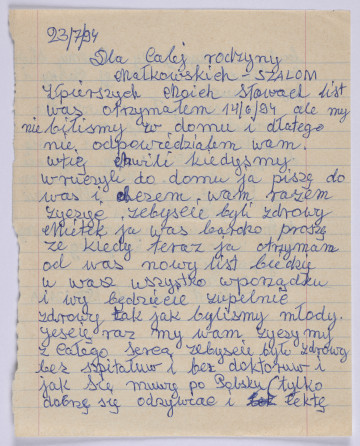 23/7/94
Dla Całej rodzyny
Małkowskich - SZALOM
Zpierszych moich słowach list
was otrzymałem 14/6/94 ale my
nie byliśmy w domu i dlatego
nie odpowredziałem wam.
wtej chwili kiedyśmy
wruczyli do domu ja piszę do
was i chcem wam razem
życzyć, żebyście byli zdrowy
Mietek ja was bardzo proszę
że kiedy teraz ja otrzymam
od was nowy list biedzy
u wasz wszystko wporządku
i wy będziecie zupełnie
zdrowy tak jak byliśmy młody.
Jeście raz my wam życzymy
z Całego serca żebyście było zdrowy
bez szpitaluw i bez doktoruw i
jak się muwę po Polsku (tylko
dobrze się odzywiać i lekte